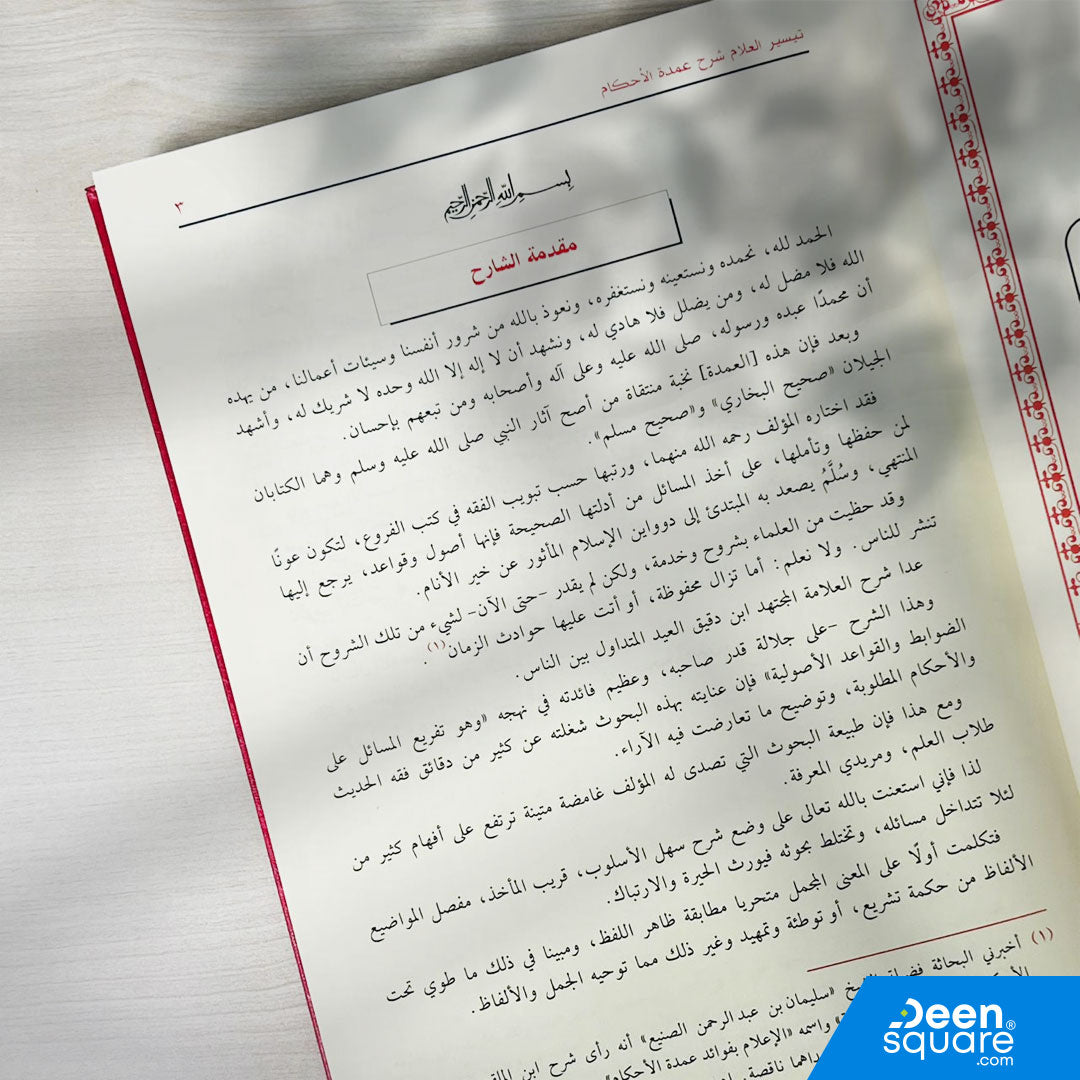 تيسير العلام شرح عمدة الأحكام
٣
بسم الله الرحمن الرحيم
مقدمة الشارح
الحمد لله، نحمده ونستعينه ونستغفره، ونعوذ بالله من شرور أنفسنا وسيئات أعمالنا، من يهده
الله فلا مضل له، ومن يضلل فلا هادي له، ونشهد أن لا إله إلا الله وحده لا شريك له، وأشهد
أن محمدًا عبده ورسوله، صلى الله عليه وعلى آله وأصحابه ومن تبعهم بإحسان.
وبعد فإن هذه [العمدة] نخبة منتقاة من أصح آثار النبي صلى الله عليه وسلم وهما الكتابان
الجيلان «صحيح البخاري» و«صحيح مسلم».
فقد اختاره المؤلف رحمه الله منهما، ورتبها حسب تبويب الفقه في كتب الفروع، لتكون عونًا
لمن حفظها وتأملها، على أخذ المسائل من أدلتها الصحيحة فإنها أصول وقواعد، يرجع إليها
المنتهي، وسُلَّمُ يصعد به المبتدئ إلى دوواين الإسلام المأثور عن خير الأنام.
وقد حظيت من العلماء بشروح وخدمة، ولكن لم يقدر -حتى الآن- لشيء من تلك الشروح أن
تنشر للناس. ولا نعلم: أما تزال محفوظة، أو أتت عليها حوادث الزمان(١).
عدا شرح العلامة المجتهد ابن دقيق العيد المتداول بين الناس.
وهذا الشرح -على جلالة قدر صاحبه، وعظيم فائدته في نهجه «وهو تفريع المسائل على
الضوابط والقواعد الأصولية» فإن عنايته بهذه البحوث شغلته عن كثير من دقائق فقه الحديث
والأحكام المطلوبة، وتوضيح ما تعارضت فيه الآراء.
ومع هذا فإن طبيعة البحوث التي تصدى له المؤلف غامضة متينة ترتفع على أفهام كثير من
طلاب العلم، ومريدي المعرفة.
لذا فإني استعنت بالله تعالى على وضع شرح سهل الأسلوب، قريب المأخذ، مفصل المواضيع
لئلا تتداخل مسائله، وتختلط بحوثه فيورث الحيرة والارتباك.
فتكلمت أولًا على المعنى المجمل متحريا مطابقة ظاهر اللفظ، ومبينا في ذلك ما طوي تحت
الألفاظ من حكمة تشريع، أو توطئة وتمهيد وغير ذلك مما توحيه الجمل والألفاظ.
(١) أخبرني البحاثة فضيلة الشيخ «سليمان بن عبد الرحمن الصنيع» أنه رأى شرح ابن الملقن
واسمه «الإعلام بفوائد عمدة الأحكام»
ناقصة
Deen
square®
.com